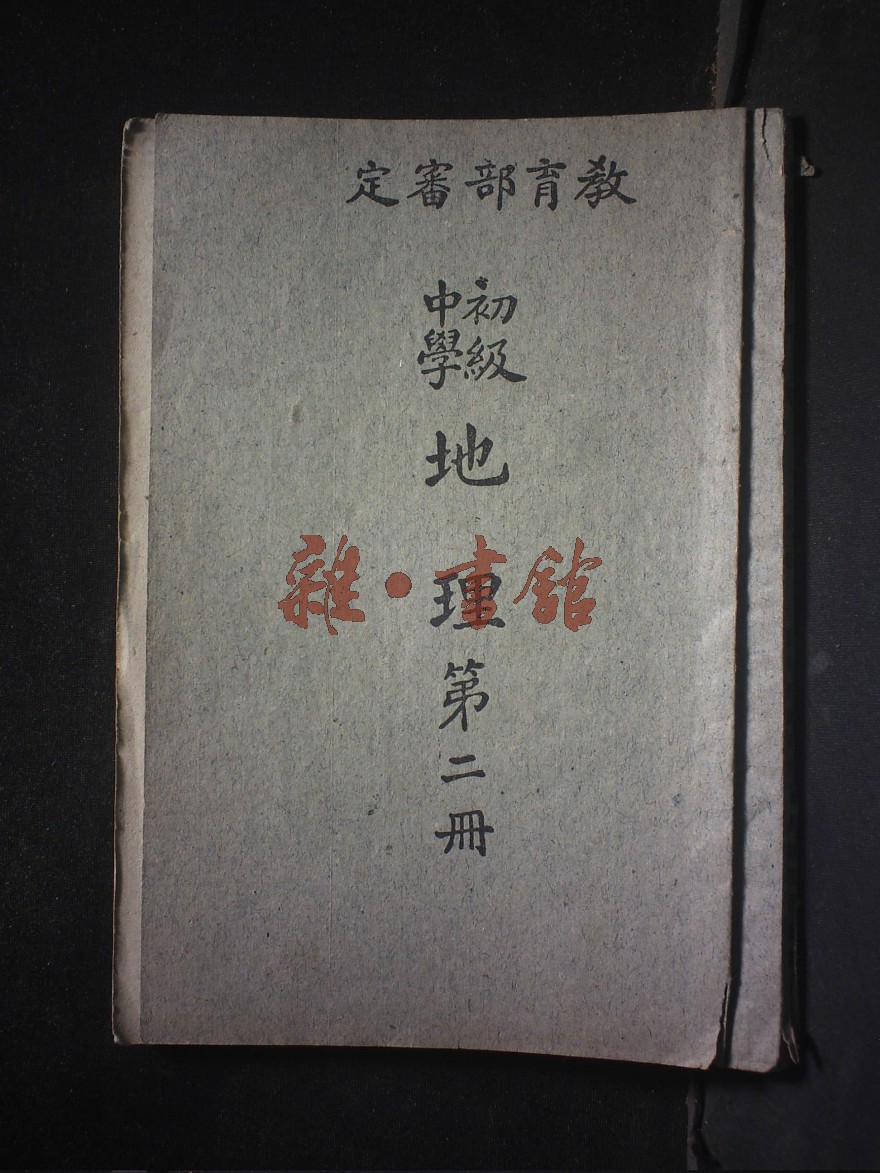 教育部審定
初級
中學
地理第二冊
雜·書館